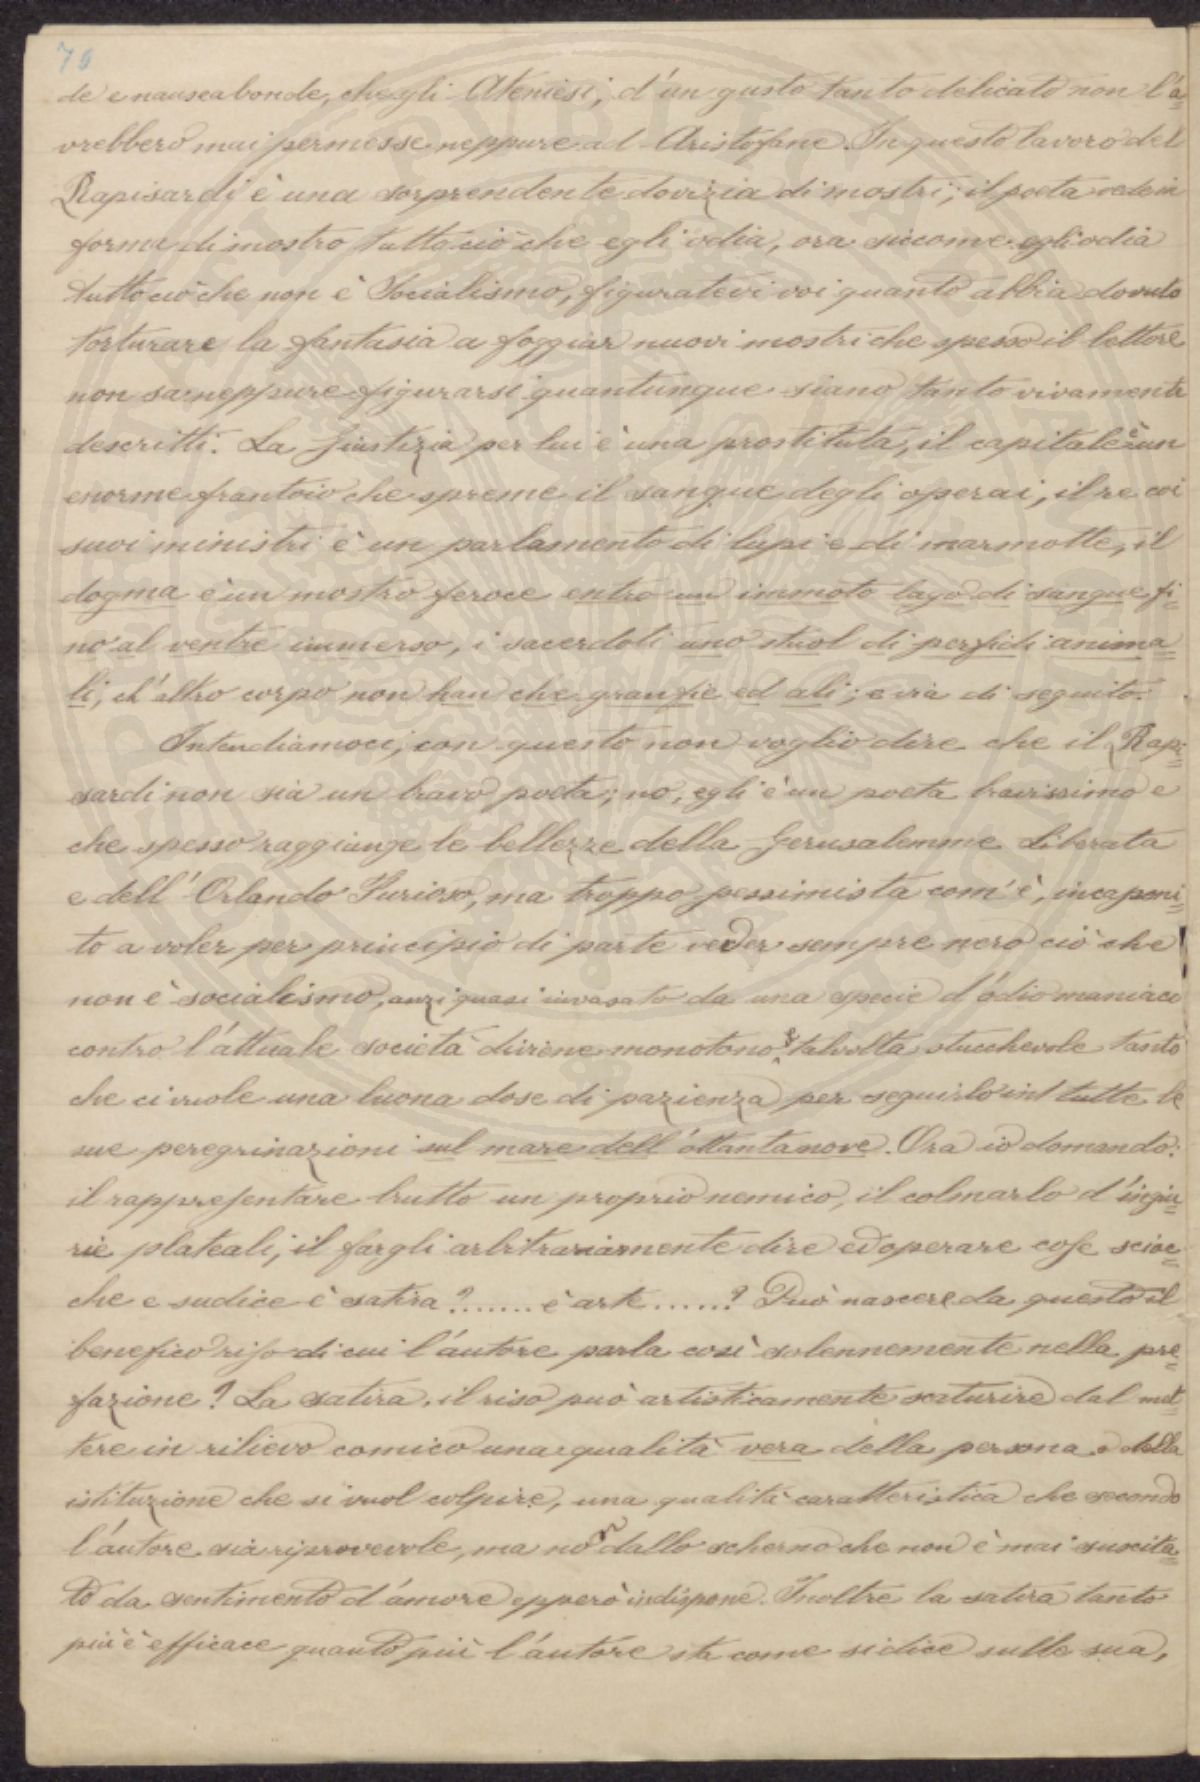 70
de e nauseabonde, che gli Ateniesi, d'un gusto tanto delicato non l'a=
vrebbero mai permesse neppure ad Aristofane. In questo lavoro del
Rapisardi è una sorprendente dovizia di mostri; il poeta vede in
forma di mostro tutto ciò che egli odia, ora siccome egli odia
tutto ciò che non è Socialismo, figuratevi voi quanto abbia dovuto
torturare la fantasia a foggiar nuovi mostri che spesso il lettore
non sa neppure figurarsi quantunque siano tanto vivamente
descritti. La Giustizia per lui è una prostituta, il capitale è un
enorme frantoio che spreme il sangue degli operai, il re coi
suoi ministri è un parlamento di lupi e di marmotte, il
dogma è un mostro feroce entro un immoto lago di sangue fi=
no al ventre immerso, i sacerdoti uno stuol di perfidi anima=
li, ch'altro corpo non han che granfie ed ali; e via di seguito.
Intendiamoci, con questo non voglio dire che il Rapi=
sardi non sia un bravo poeta; no, egli è un poeta bravissimo e
che spesso raggiunge le bellezze della Gerusalemme Liberata
e dell'Orlando Furioso, ma troppo pessimista com'è, incaponi=
to a voler per principio di parte veder sempre nero ciò che
non è socialismo, anzi quasi invasato da una specie d'odio maniaco
contro l'attuale società diviene monotono e talvolta stucchevole tanto
che ci vuole una buona dose di pazienza per seguirlo in tutte le
sue peregrinazioni sul mare dell'ottantanove. Ora io domando:
il rappresentare brutto un proprio nemico, il colmarlo d'ingiu=
rie plateali, il fargli arbitrariamente dire ed operare cose scioc=
che e sudice è satira?....... è arte ......? Può nascere da questo il
benefico riso di cui l'autore parla così solennemente nella pre=
fazione? La satira, il riso può artisticamente scaturire dal met=
tere in rilievo comico una qualità vera della persona o della
istituzione che si vuol colpire, una qualità caratteristica che secondo
l'autore sia riprovevole, ma non dallo scherno che non è mai suscita=
to da sentimento d'amore epperò indispone. Inoltre la satira tanto
più è efficace quanto più l'autore sta come si dice sulle sua,